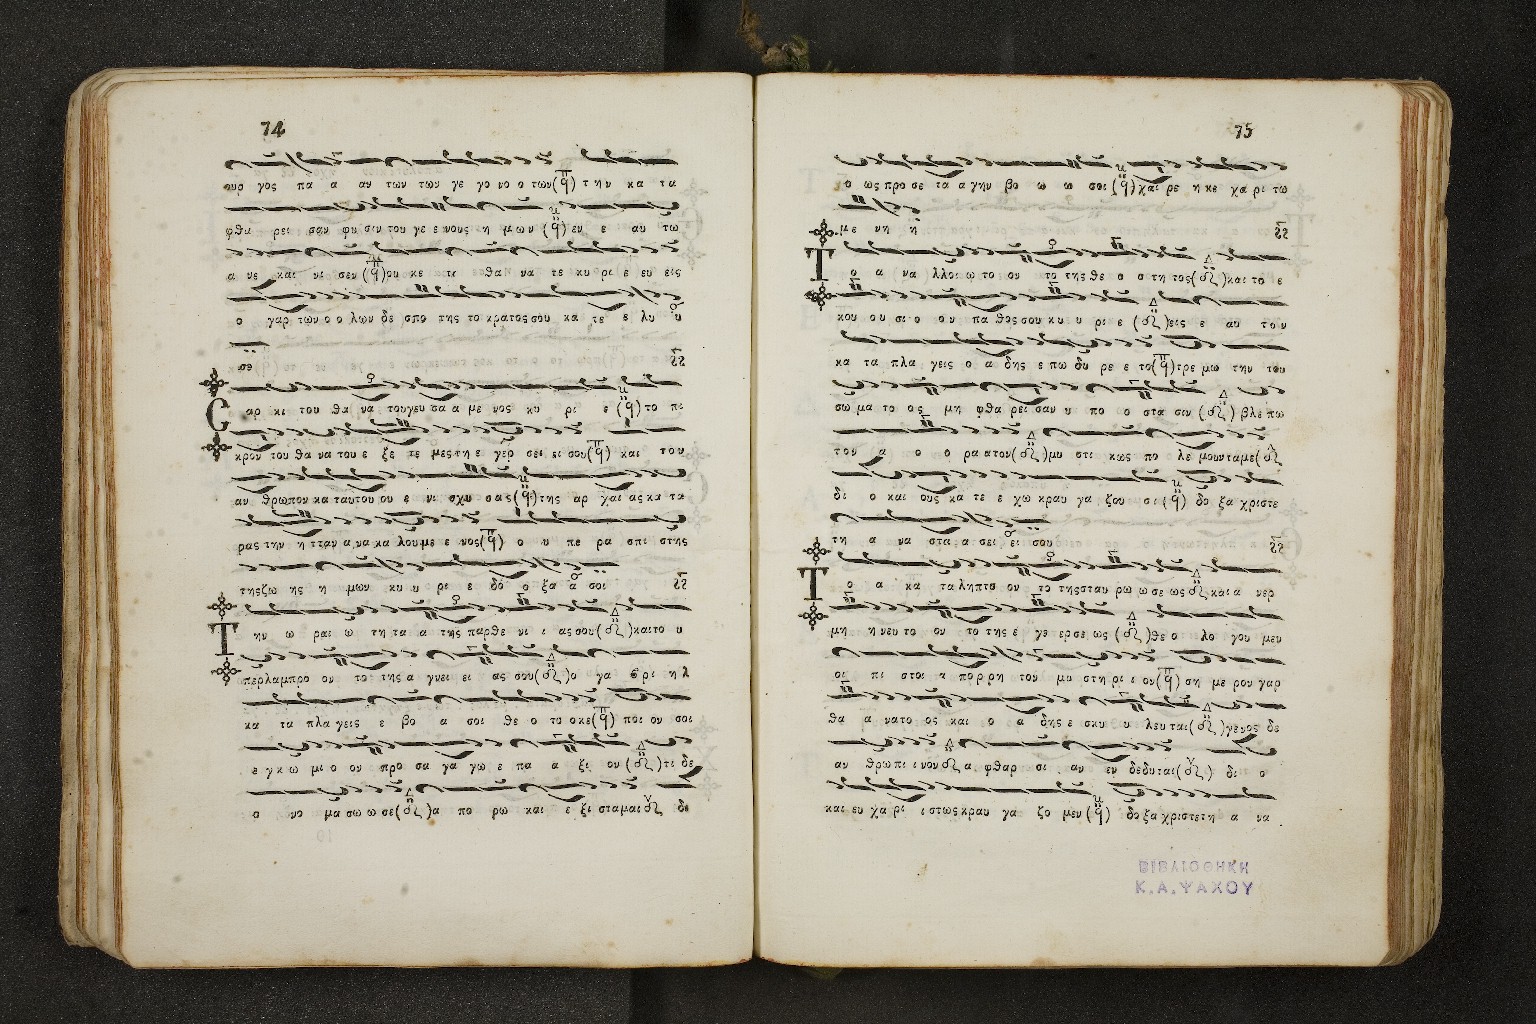 74
ουρ γος πα α αν των των γε γο νο ο των (π̅ q) την κα τα
φθει ρει σαν φυ σιν του γε ε νους η μων (q) εν ε αυ τω
α νε και νι σεν (q) ου κε τι θα να τε κυ ρι ε ευ εις
ο γαρ των ο ο λων δε σπο της το κρατος σου κα τε ε λυ υ
σε
Σ αρ κι του θα να του γευ σα α με νος κυ ρι ε (q) το πι
κρον του θα να του ε ξε τε μες τη ε γερ σει ει σου (q) και τον
αν θρωπον κα ταυτου ου ε νι σχυ σας (q) της αρ χαι ας κα τα
ρας την η τταν α να κα λου με ε νος (q) ο υ πε ρα σπι στης
της ζω ης η μων κυ υ ρι ε ε δο ο ξα α σοι
Τ ην ω ραι ω τη τα α της παρθε νι ι ας σου (Δ) και το υ
περλαμπρο ον το της α γνει ει ας σου (Δ) ο γα βρι η λ
κα τα πλα γεις ε βο α σοι θε ο το ο κε (q) ποι ον σοι
ε γκ ω μι ο ον προ σα γα γω ε πα α ξι ον (Δ) τι δε
ο νο μα σω ω σε (Δ) α πο ρω και ε ξι σταμαι δι
75
ο ως προ σε τα α γην βο ω ω σοι (q) χαι ρε η κε χα ρι τω
με νη η
Τ ο α να λλοι ω το ον το της θε ο ο τη τος (Δ) και το ε
κου ου σι ο ον πα θος σου κυ υ ρι ε (Δ) εις ε αυ τον
κα τα πλα γεις ο α δης ε πω δυ ρε ε το (q) τρε μω την του
σω μα το ος μη φθα ρει σαν υ πο ο στα σιν (Δ) βλε πω
τον α ο ο ρα ατον (Δ) μυ στι κως πο λε μουντα με (Δ)
δι ο και ους κα τε ε χω κραυ γα ζου σι (q) δο ξα χριστε
τη α να στα α σει ει σου
Τ ο α κα ταληπτο ον το της σταυ ρω ω σε ως και α νερ
μη η νευ το ον το της ε γε ερ σε ως (Δ) θε ο λο γου μεν
οι πι στοι α πορ ρη τον μυ στη ρι ι ον (q) ση με ρον γαρ
θα α νατο ος και ο α δης ε σκυ υ λευ ται (Δ) γενος δε
αν θρωπι ι νον α φθαρ σι αν εν δεδυται δι ο
και ευ χα ρι ι στως κραυ γα ζο μεν (q) δοξα χριστε τη α να
ΒΙΒΛΙΟΘΗΚΗ
Κ. Α. ΨΑΧΟΥ